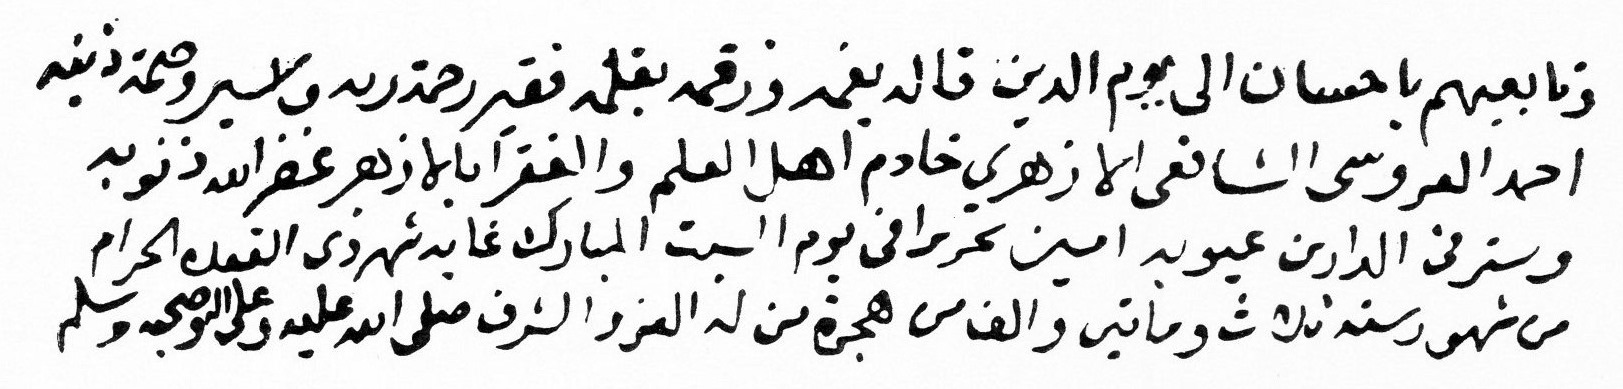 وتابعيهم باحسان الى يوم الدين قاله بفمه ورقمه بقلمه فقير رحمة ربه واسير وصمة ذنبه
احمد العروسى الشافعى الازهري خادم اهل العلم والفقرا بالازهر غفر الله ذنوبه
وستر فى الدارين عيوبه امين تحريرا فى يوم السبت المبارك غاية شهر ذى القعدة الحرام
من شهور سنة ثلاث وماتين والف من هجرة من له العز والشرف صلى الله عليه وعلى اله وصحبه وسلم